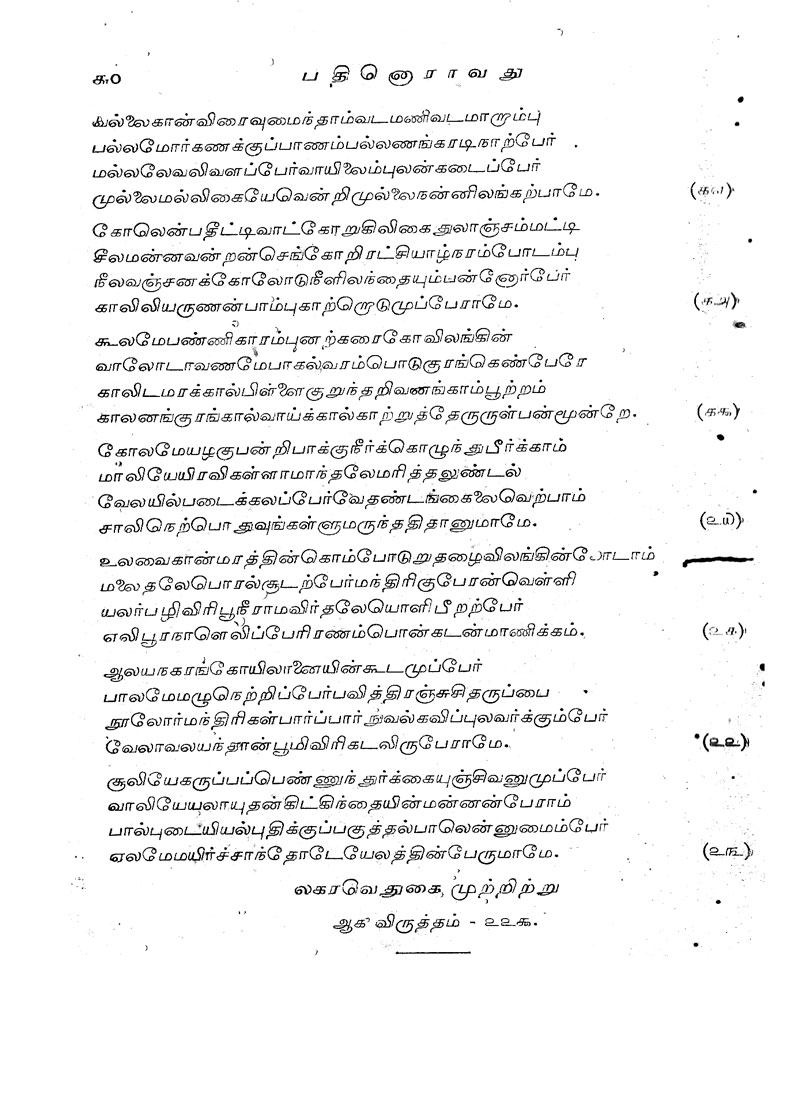 ௬0 பதினொராவது
வல்லைகான்விரைவுமைந்தாம்வடமணிவடமாரூம்பு
பல்லமோர்கணக்குப்பாணம்பல்லணங்கரடிநாற்பேர்
மல்லலேவலிவளப்பேர்வாயிலைம்புலன்கடைப்பேர்
முல்லைமல்லிகையேவென்றிமுல்லைநன்னிலங்கற்பாமே. (௧௭)
கோலென்பதீட்டிவாட்கோறுகிலிகைதுலாஞ்சம்மட்டி
சீலமன்னவன்றன்செங்கோறிரட்சியாழ்நரம்போடம்பு
நீலவஞ்சனக்கோலோடுநீளிலந்தையும்பன்னோர்பேர்
காலிலியருணன்பாம்புகாற்றொடுமுப்பேராமே. (௧௮)
கூலமேபண்ணிகாரம்புனற்கரைகோவிலங்கின்
வாலோடாவணமேபாகல்வரம்பொடுகுரங்கெண்பேரே
காலிடமரக்கால்பிள்ளைகுறுந்தறிவனங்காம்பூற்றம்
காலனங்குரங்கால்வாய்க்கால்காற்றுத்தேருருள்பன்மூன்றே. (௧௯)
கோலமேயழகுபன்றிபாக்குநீர்க்கொழுந்துபீர்க்காம்
மாலியேயிரவிகள்ளாமாந்தலேமரித்தலுண்டல்
வேலையில்படைக்கலப்பேர்வேதண்டங்கைலைவெற்பாம்
சாலிநெற்பொதுவுங்கள்ளுமருந்ததிதானுமாமே. (௨௰)
உலவைகான்மரத்தின்கொம்போடுறுதழைவிலங்கின்கோடாம்
மலைதலேபொரல்சூடற்பேர்மந்திரிகுபேரன்வெள்ளி
யலர்பழிவிரிபூநீராமவிர்தலேயொளிபீறற்பேர்
எலிபூரநாளெலிப்பேரிரணம்பொன்கடன்மாணிக்கம். (௨௧)
ஆலயநகரங்கோயிலானையின்கூடமுப்பேர்
பாலமேமழுநெற்றிப்பேர்பவித்திரஞ்சுசிதருப்பை
நூலோர்மந்திரிகள்பார்ப்பார்நுவல்கவிப்புலவர்க்கும்பேர்
வேலாவலயந்தான்பூமிவிரிகடலிருபேராமே. (௨௨)
சூலியேகருப்பப்பெண்ணுந்துர்க்கையுஞ்சிவனுமுப்பேர்
வாலியேயுலாயுதன்கிட்கிந்தையின்மன்னன்பேராம்
பால்புடையியல்புதிக்குப்பகுத்தல்பாலென்னுமைம்பேர்
ஏலமேமயிர்ச்சாந்தோடேயேலத்தின்பேருமாமே. (௨௩)
லகரவெதுகை முற்றிற்று
ஆக விருத்தம் - ௨௨௯.